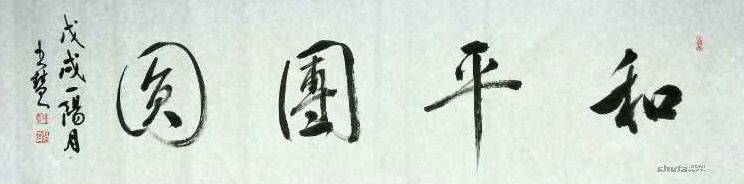 和平團圓
戊戌一陽月
shufa.com